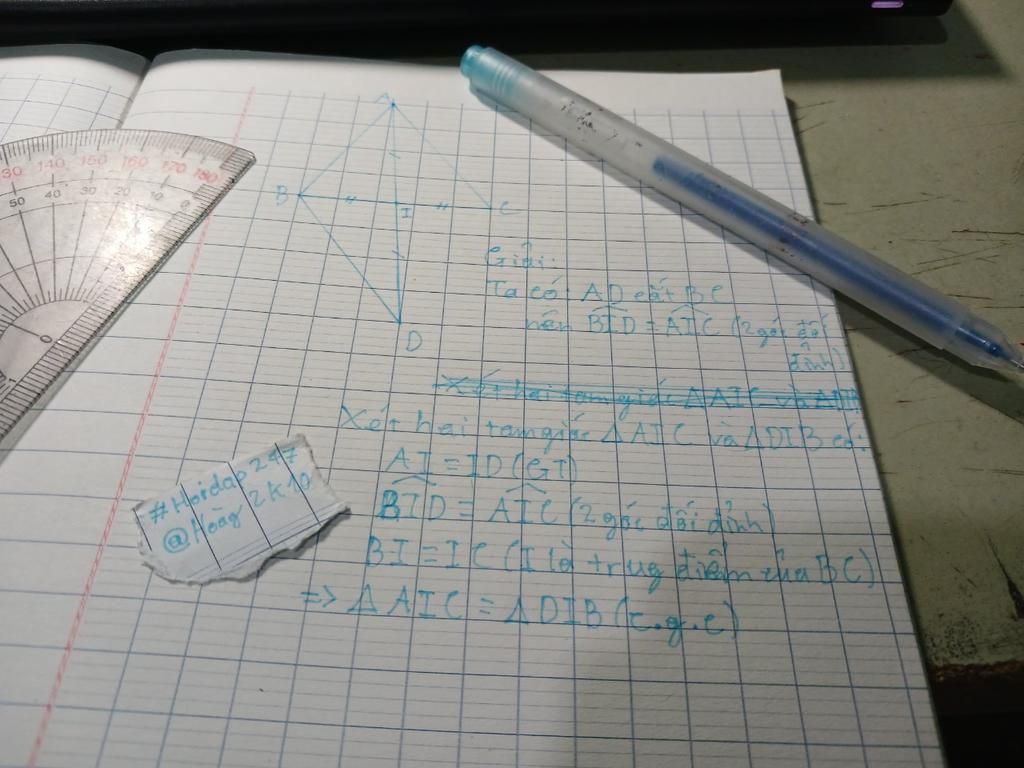 A
B
I
C
D
Giải:
Ta có: AD cắt BC
nên BID = AIC (2 góc đối
đỉnh)
Xét hai tam giác Δ AIC và
Xét hai tam giác Δ AIC và Δ DIB có:
AI = ID (GT)
BID = AIC (2 góc đối đỉnh)
BI = IC (I là trug điểm của BC)
=> Δ AIC = Δ DIB (c.g.c)
#Hoidap247
@Hoàg2k10
30 140 150 160 170 180
50 40 30 20 10 0
0